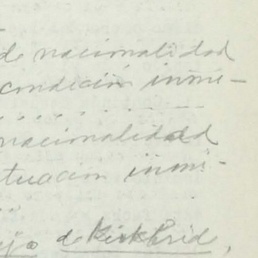 de nacionalidad
condición inmi-
. . . . . . . . .
nacionalidad
tuación inmi-
. . .
de Kirkbrid,